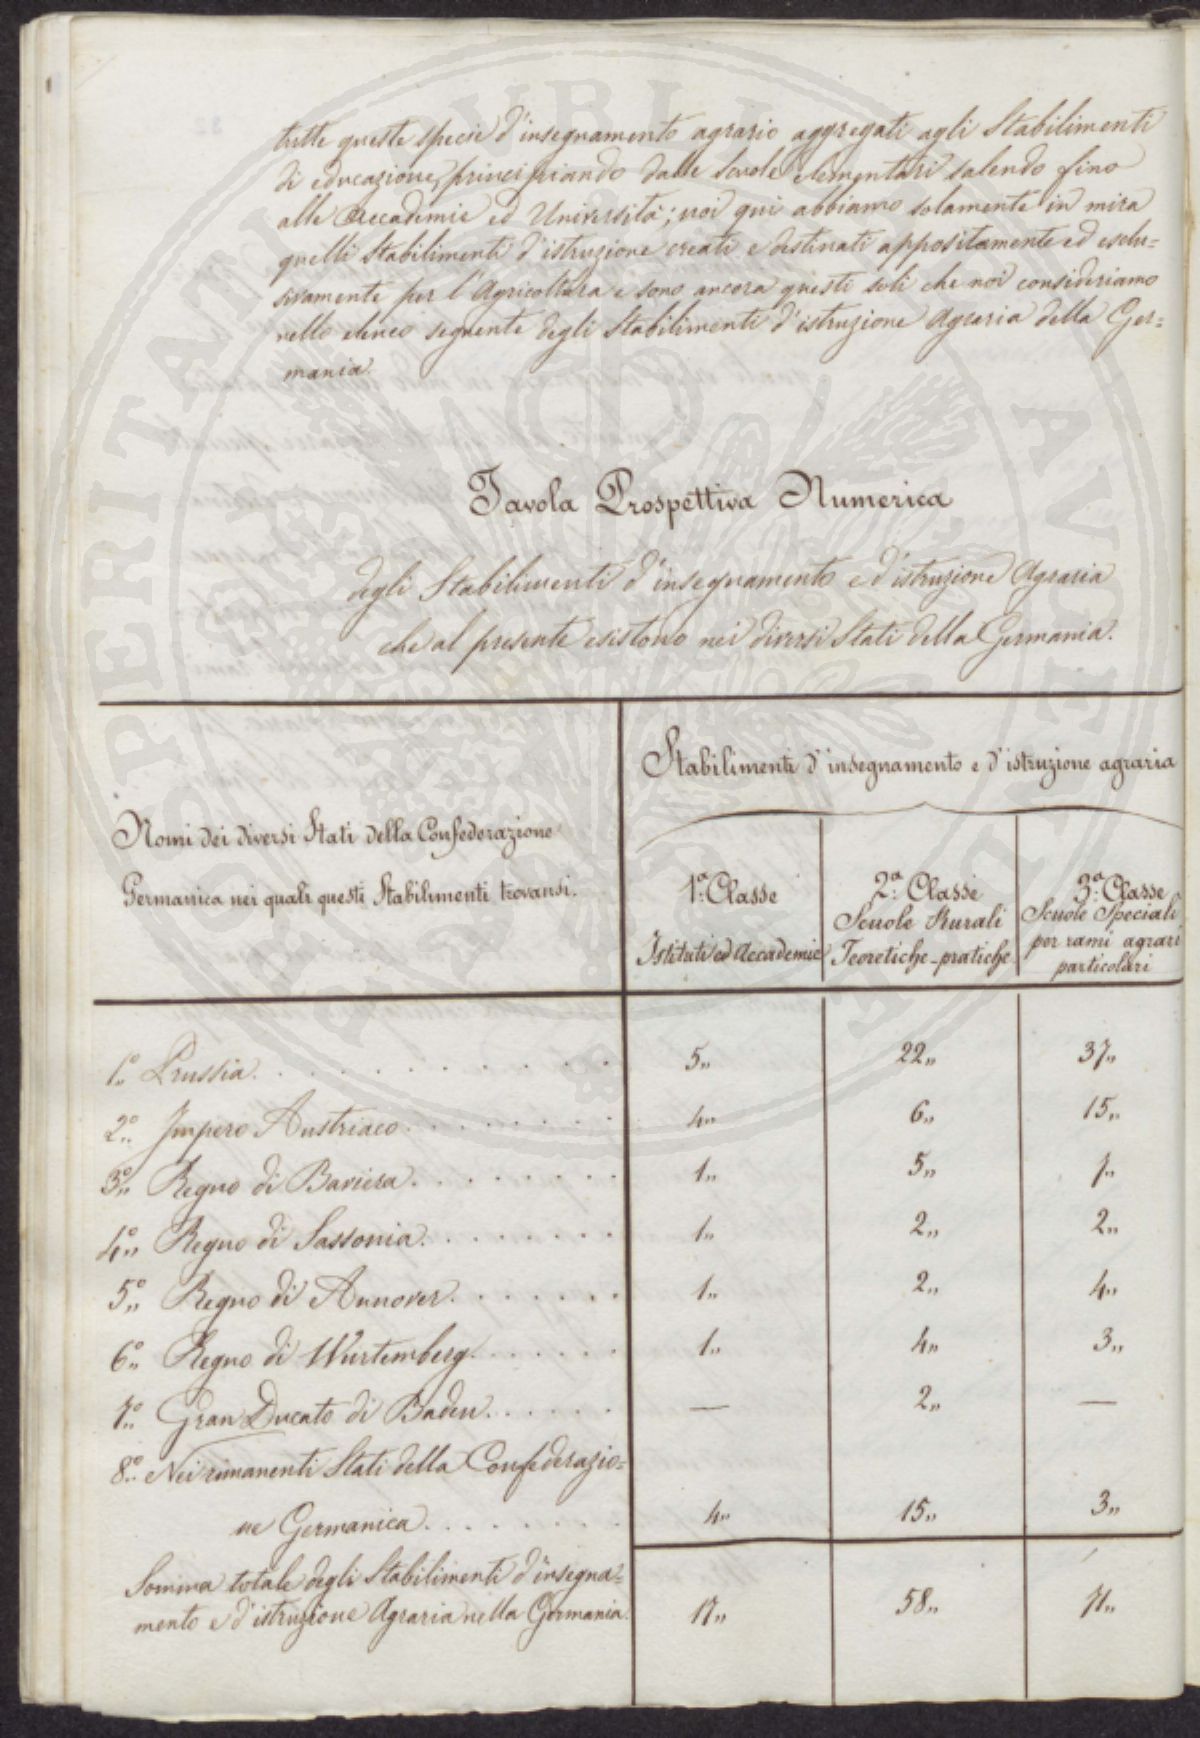 tutte queste specie d'insegnamento agrario aggregati agli Stabilimenti
di educazione, principiando dalle Scuole elementari salendo fino
alle Accademie ed Università; noi qui abbiamo solamente in mira
quelli Stabilimenti d'istruzione creati e destinati appositamente ed esclu=
sivamente per l'Agricoltura e sono ancora questi soli che noi consideriamo
nello elenco seguente degli Stabilimenti d'istruzione Agraria della Ger=
mania.
Tavola Prospettiva Numerica
degli Stabilimenti d'insegnamento e d'istruzione Agraria
che al presente esistono nei diversi Stati della Germania.
Nomi dei diversi Stati della Confederazione
Germanica nei quali questi Stabilimenti trovansi.
Stabilimenti d'insegnamento e d'istruzione agraria
1.ª Classe
Istituti ed Accademie
2.ª Classe
Scuole Rurali
Teoretiche-pratiche
3.ª Classe
Scuole Speciali
per rami agrari
particolari
1.º Prussia. . . . . . . . . . . 5„ 22„ 37„
2.º Impero Austriaco. . . . . . . . 4„ 6„ 15„
3.º Regno di Baviera. . . . . . . . 1„ 5„ 7„
4.º Regno di Sassonia. . . . . . . 1„ 2„ 2„
5.º Regno di Annover. . . . . . . 1„ 2„ 4„
6.º Regno di Wurtemberg. . . . . . 1„ 4„ 3„
7.º Gran Ducato di Baden. . . . . . — 2„ —
8.º Nei rimanenti Stati della Confederazio=
ne Germanica. . . . . . . . 4„ 15„ 3„
Somma totale degli Stabilimenti d'insegna=
mento e d'istruzione Agraria nella Germania. 17„ 58„ 71„